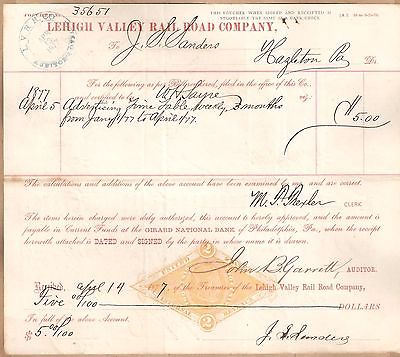 THIS VOUCHER WHEN SIGNED AND RECEIPTED IS
35651
LEHIGH VALLEY RAIL ROAD COMPANY,
To J. S. Sanders
Hazleton Pa Dr.
For the following as per Bill rendered, filed in the office of this Co.,
and certified to by W H Sayre viz:
1877
April 5 Advertising Time Table weekly 3 months $
from Jany 1/77 to April 1/77. 5.00
The calculations and additions of the above account have been examined by me, and are correct.
CLERK
The items herein charged were duly authorized, this account is hereby approved, and the amount is
payable in Current Funds at the GIRARD NATIONAL BANK of Philadelphia, Pa., when the receipt
hereunto attached is DATED and SIGNED by the party in whose name it is drawn.
John B Garrett AUDITOR.
Received, April 14 1877, of the Treasurer of the Lehigh Valley Rail Road Company,
Five 00/100 DOLLARS
In full of the above Account.
$ 5.00/100 J. S. Sanders
UNITED
2 2
REVENUE